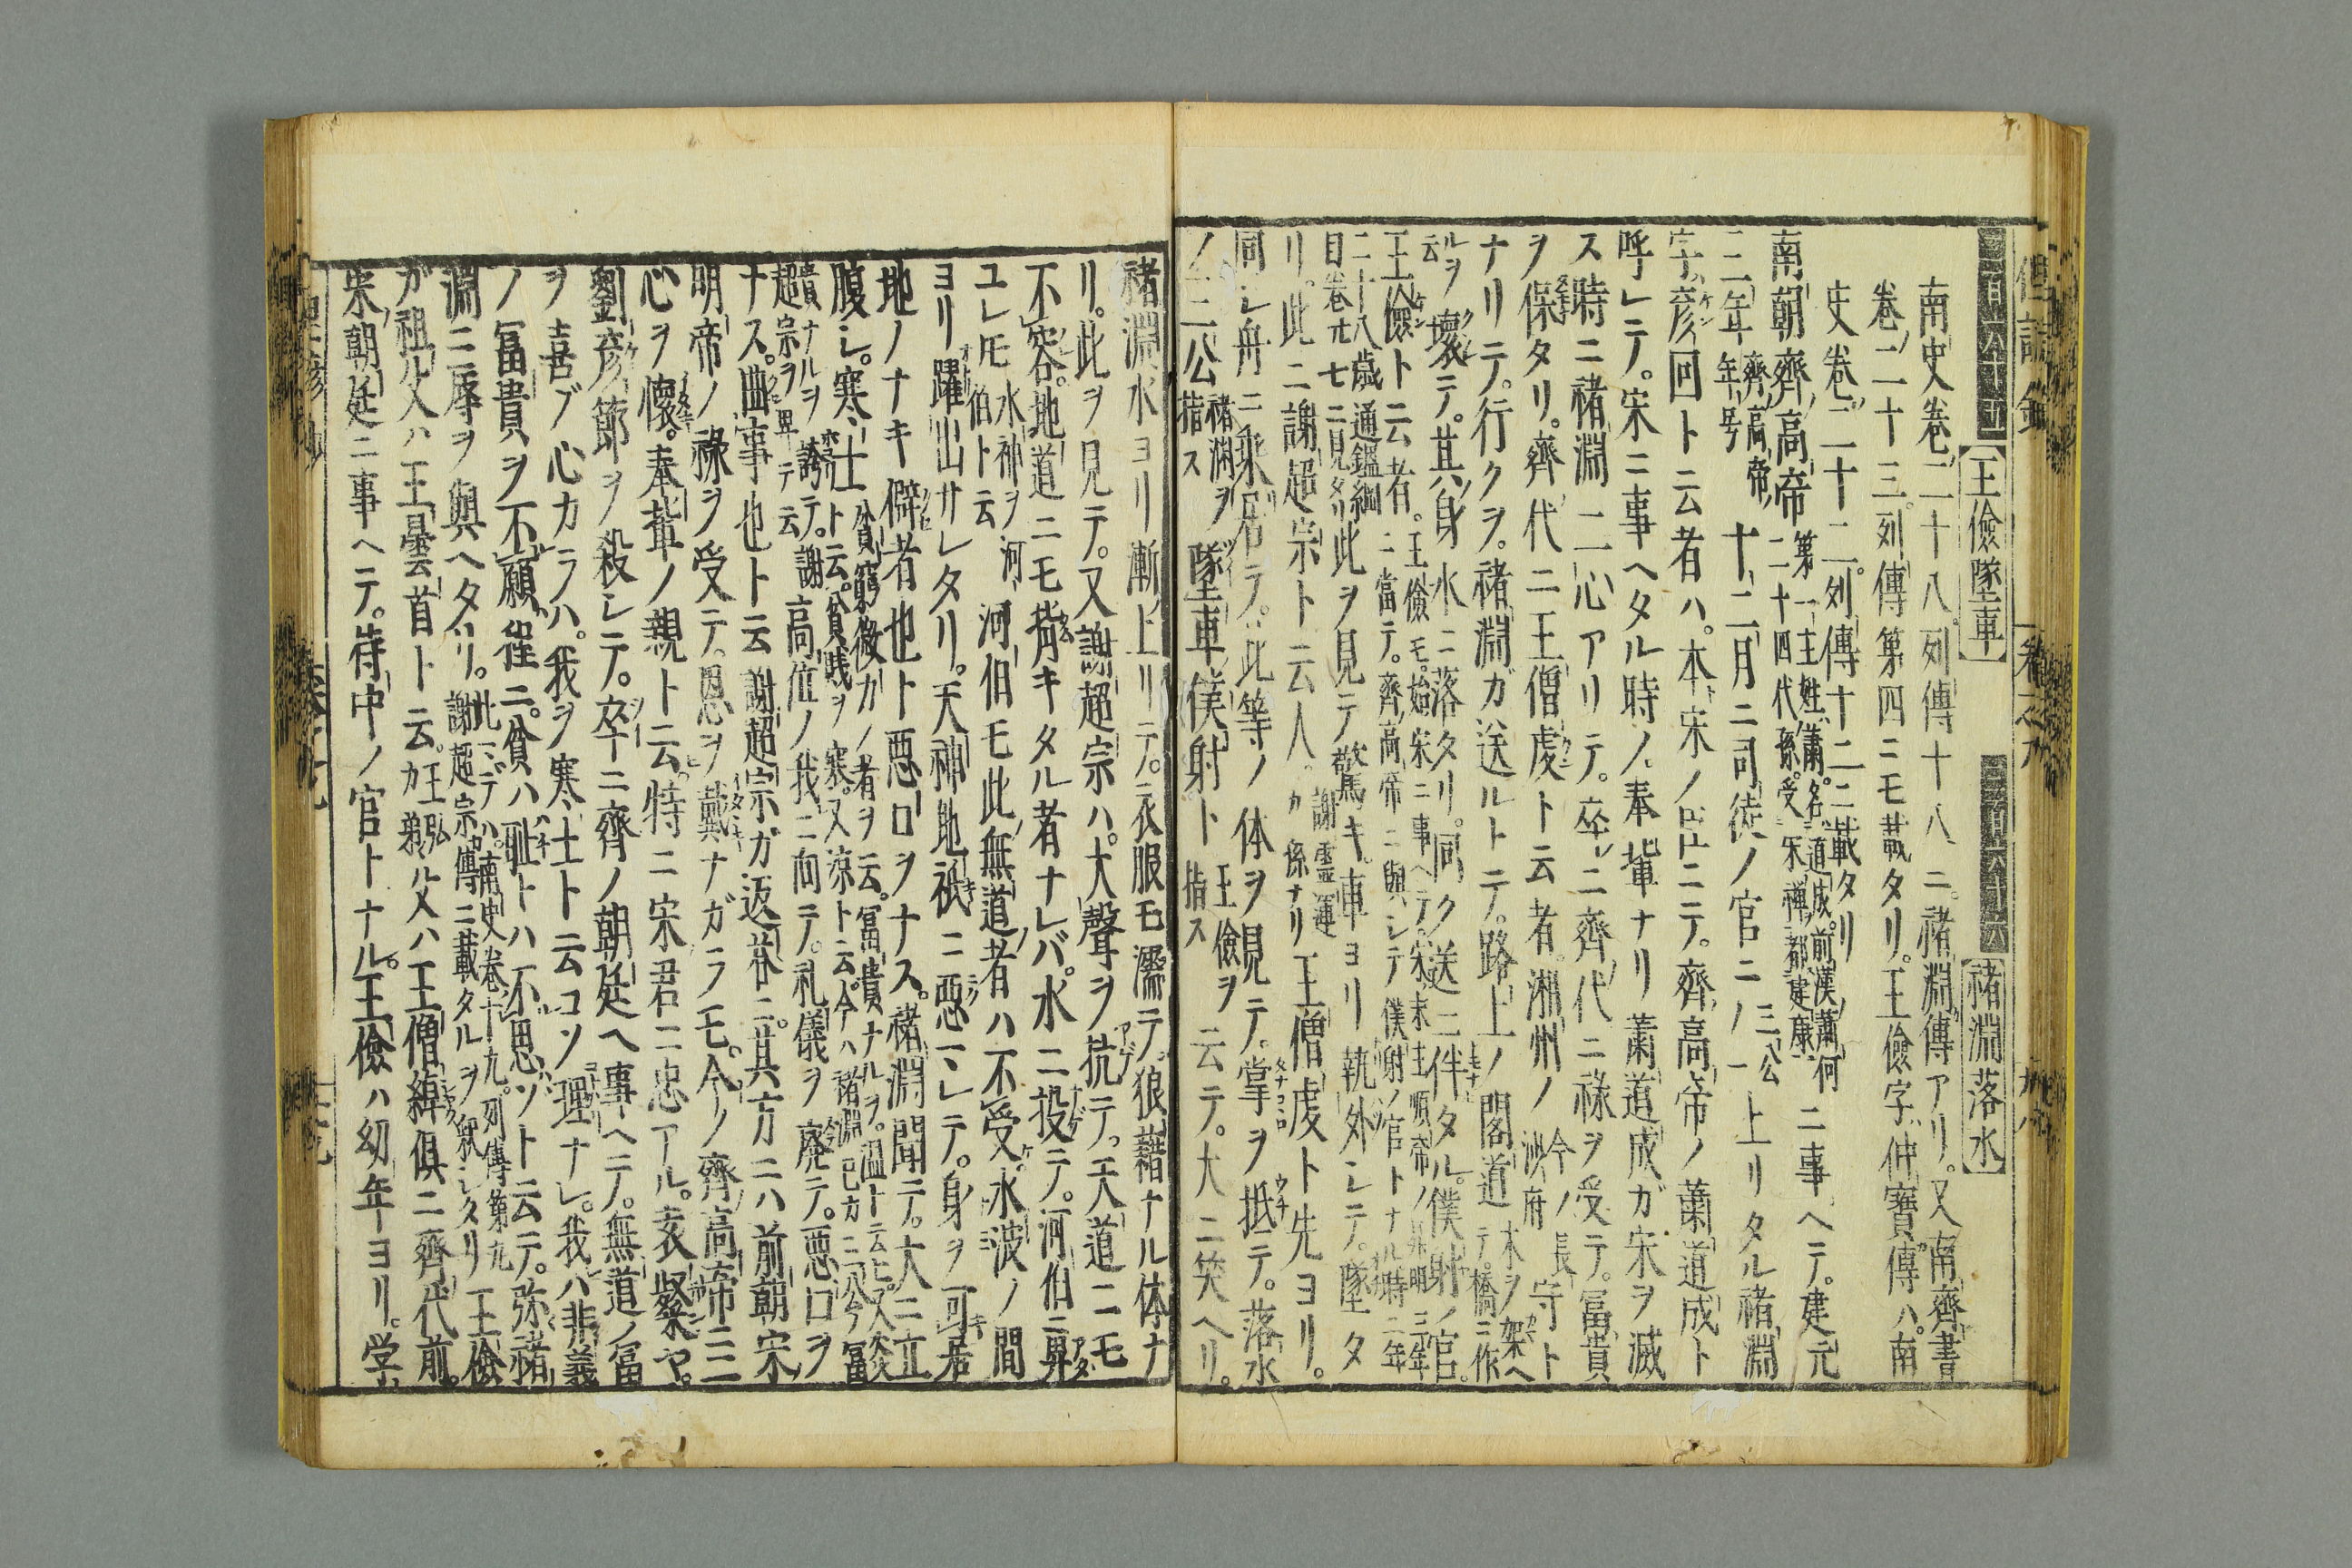 王儉墜車 褚淵落水
南史卷二十八列傳十八ニ。褚淵傳アリ。又南齊書
卷二十三。列傳第四ニモ載タリ。王儉字仲寶傳ハ。南
史卷二十二。列傳十二ニ載タリ
南朝齊高帝第一主姓蕭。名道成。前漢蕭何二十四代孫。受宋禪都建康ニ事ヘテ。建元
二年齊高帝年号十二月ニ司徒ノ官ニノ三公一上リタル褚淵
字彦回ト云者ハ。本宋ノ臣ニテ。齊高帝ノ蕭道成ト
呼レテ。宋ニ事ヘタル時ノ奉輩ナリ蕭道成ガ宋ヲ滅
ス時ニ褚淵二心アリテ。卒ニ齊代ニ禄ヲ受テ。冨貴
ヲ保タリ。齊代ニ王僧虔ト云者。湘州ノ今ノ長沙府守ト
ナリテ。行クヲ。褚淵ガ送ルトテ。路上ノ閣道木ヲ架ヘテ。橋ニ作
ルヲ云壞テ。其身水ニ落タリ。同ク送ニ伴タル。僕射ノ官。
王儉ト云者。王儉モ。始宋ニ事ヘテ。宋末主順帝ノ昇明三年ニ當テ。齊高帝ニ與シテ僕射ノ官トナル時ニ年
二十八歳通鑑綱目卷廿七ニ見タリ此ヲ見テ驚キ。車ヨリ執外シテ。墜タ
リ。此ニ謝超宗ト云人。謝靈運カ孫ナリ王僧虔ト先ヨリ。
同レ舟ニ乗居テ。此等ノ体ヲ見テ。掌ヲ抵テ。落水
ノ三公褚淵ヲ指ス墜車僕射ト王儉ヲ指ス云テ。大ニ笑ヘリ。
褚淵水ヨリ漸上リテ。衣服モ濡テ。狼藉ナル体ナ
リ。此ヲ見テ。又謝超宗ハ。大聲ヲ抗テ。天道ニモ
不容。地道ニモ背キタル者ナレバ。水ニ投テ。河伯ニ畀
ユレ𪜈水神ヲ河伯ト云河伯モ此無道者ハ不受。水波ノ間
ヨリ躍出サレタリ。天神地祇ニ惡マレテ。身ヲ可居
地ノナキ僻者也ト惡口ヲナス。褚淵聞テ。大ニ立
腹シ。寒士貧窮微力ノ者ヲ云。冨貴ナルヲ。温ト云ヒ。又炎ト云。貧賎ヲ寒。又凉ト云。今ハ褚淵已カ三公今冨
貴ナルヲ誇テ。謝超宗ヲ卑テ云高位ノ我ニ向テ。礼儀ヲ廢テ。惡口ヲ
ナス。曲事也ト云謝超宗ガ返荅ニ。其方ニハ前朝宋
明帝ノ禄ヲ受テ。恩ヲ戴ナガラモ。今ノ齊高帝ニ二
心ヲ懷。奉輩ノ親ト云。特ニ宋君ニ忠アル。袁粲ヤ。
劉彦節ヲ殺シテ。卒ニ齊ノ朝廷ヘ事ヘテ。無道ノ冨
ヲ喜ブ心カラハ。我ヲ寒士ト云コソ理ナレ。我ハ非義
ノ冨貴ヲ不願。雀ニ。貧ハ恥トハ不思ゾト云テ。弥褚
淵ニ辱ヲ與ヘタリ。此一デハ。南史卷十九。列傳第九謝超宗カ傳ニ載タルヲ釈シタリ王儉
ガ祖父ハ王曇首ト云。王弘カ弟父ハ王僧綽俱ニ齊代前。
宋朝廷ニ事ヘテ。待中ノ官トナル。王儉ハ幼年ヨリ。学